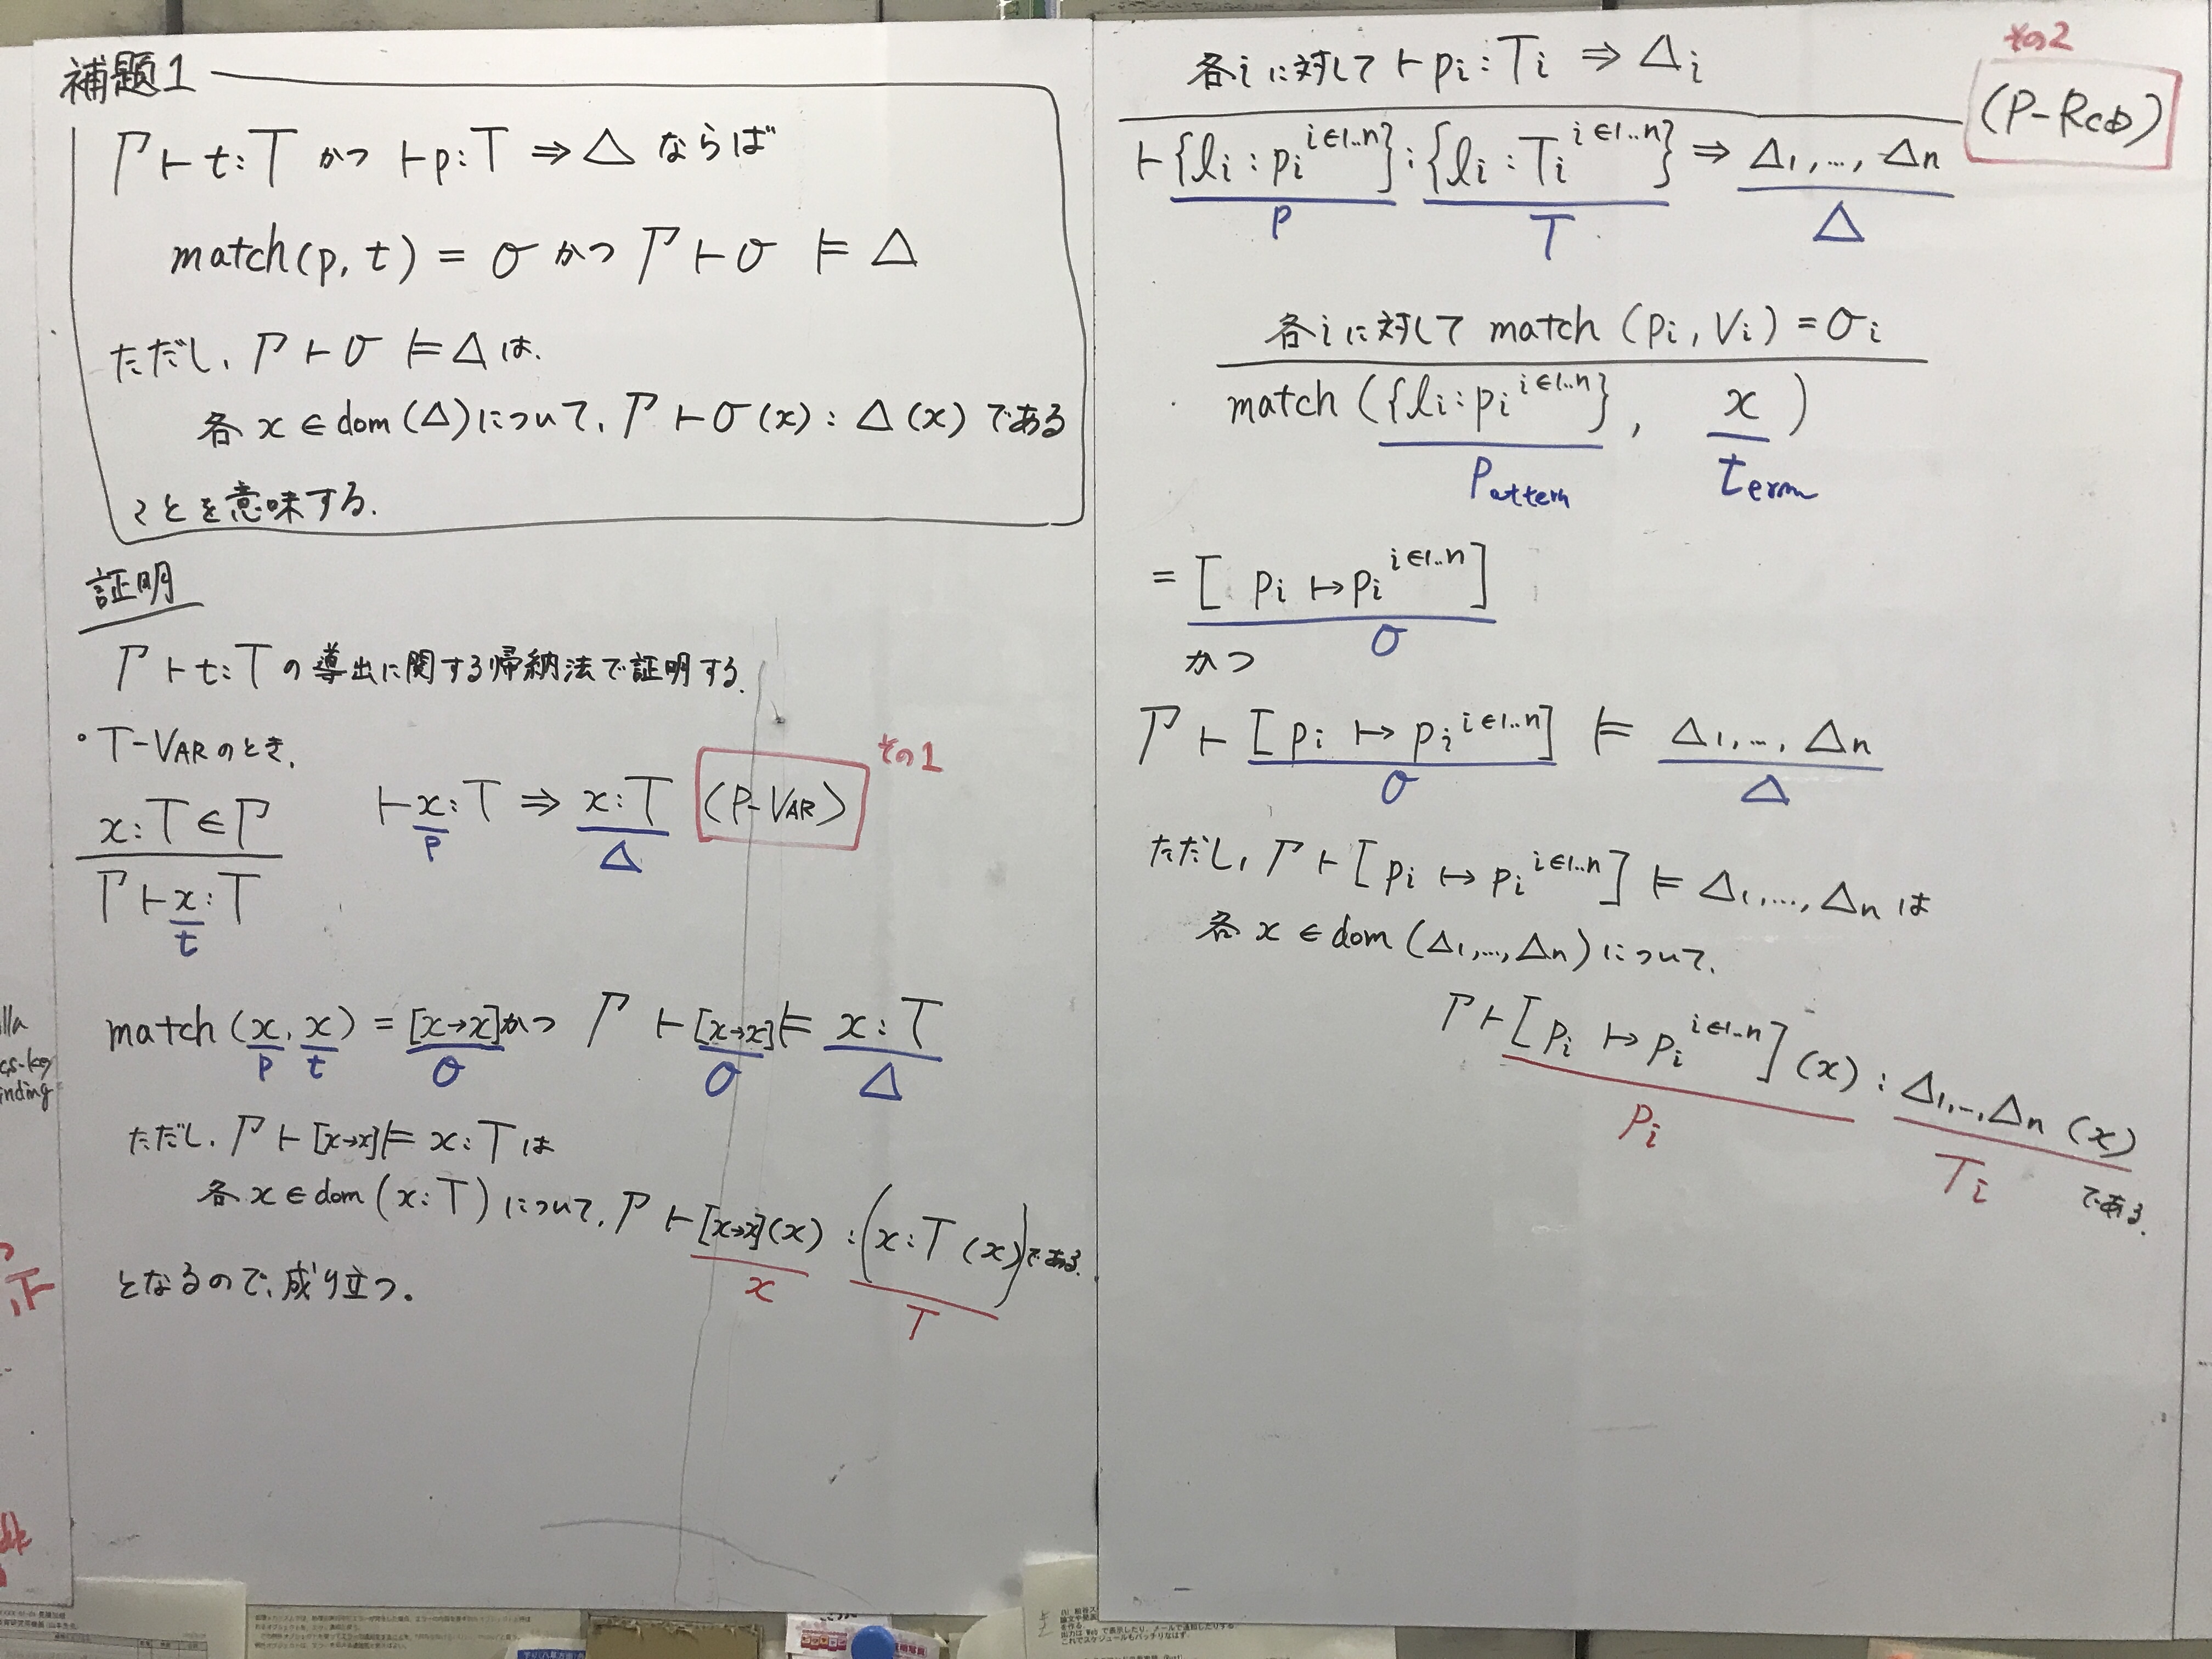 補題1
Γ ⊢ t:T かつ ⊢ p:T ⇒ Δ ならば
match(p, t) = σ かつ Γ ⊢ σ ⊨ Δ
ただし、Γ ⊢ σ ⊨ Δ は、
各 x ∈ dom(Δ) について、Γ ⊢ σ(x) : Δ(x) である
ことを意味する.
証明
Γ ⊢ t:T の導出に関する帰納法で証明する.
・T-VAR のとき,
その1
x:T ∈ Γ
⊢ x:T ⇒ x:T (P-VAR)
p Δ
Γ ⊢ x:T
t
match(x, x) = [x→x] かつ Γ ⊢ [x→x] ⊨ x:T
p t σ σ Δ
ただし、Γ ⊢ [x→x] ⊨ x:T は
各 x ∈ dom(x:T) について、Γ ⊢ [x→x](x) : (x:T (x)) である.
x T
となるので、成り立つ.
その2
各iに対して ⊢ pi:Ti ⇒ Δi
(P-RCD)
⊢ {li:pi i∈1..n} : {li:Ti i∈1..n} ⇒ Δ1,…, Δn
P T Δ
各iに対して match(pi, Vi) = σi
match({li:pi i∈1..n}, x)
Pattern term
= [pi ↦ pi i∈1..n]
σ
かつ
Γ ⊢ [pi ↦ pi i∈1..n] ⊨ Δ1,…, Δn
σ Δ
ただし、Γ ⊢ [pi ↦ pi i∈1..n] ⊨ Δ1,…, Δn は
各 x ∈ dom(Δ1,…,Δn) について、
Γ ⊢ [pi ↦ pi i∈1..n](x) : Δ1,…,Δn (x)
Pi Ti である.